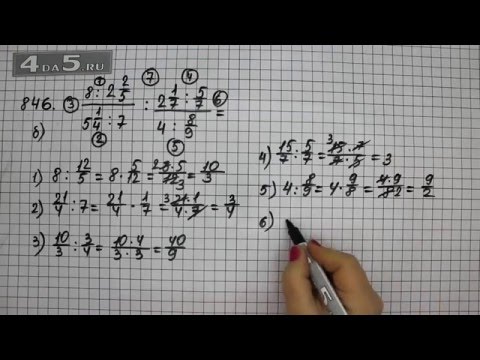 4DA5.RU
846.
б)
③ (8 : 2 2/5) / (5 1/4 : 7) ⑦ : (2 1/7 : 5/7) / (4 : 8/9) ⑥ =
① ④
② ⑤
1) 8 : 12/5 = 8 · 5/12 = 2 8·5/12 3 = 10/3
2) 21/4 : 7 = 21/4 · 1/7 = 3 21·1/4·7 = 3/4
3) 10/3 : 3/4 = 10·4/3·3 = 40/9
4) 15/7 : 5/7 = 3 15·7/7·5 = 3
5) 4 : 8/9 = 4 · 9/8 = 4·9/8 2 = 9/2
6)